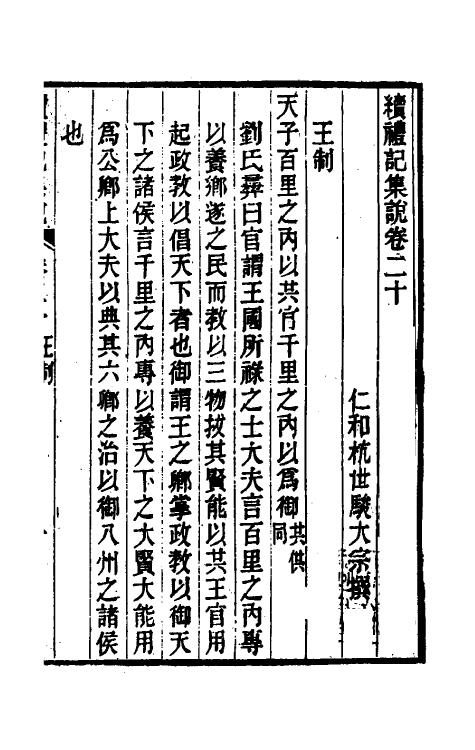 續禮記集說卷二十
仁和杭世駿大宗撰
王制
天子百里之內以共官千里之內以爲御共供同
劉氏彝曰官謂王國所祿之士大夫言百里之內專
以養鄉遂之民而敎以三物拔其賢能以共王官用
起政敎以倡天下者也御謂王之鄉掌政敎以御天
下之諸侯言千里之內專以養天下之大賢大能用
爲公鄉上大夫以典其六鄉之治以御八州之諸侯
也
王制